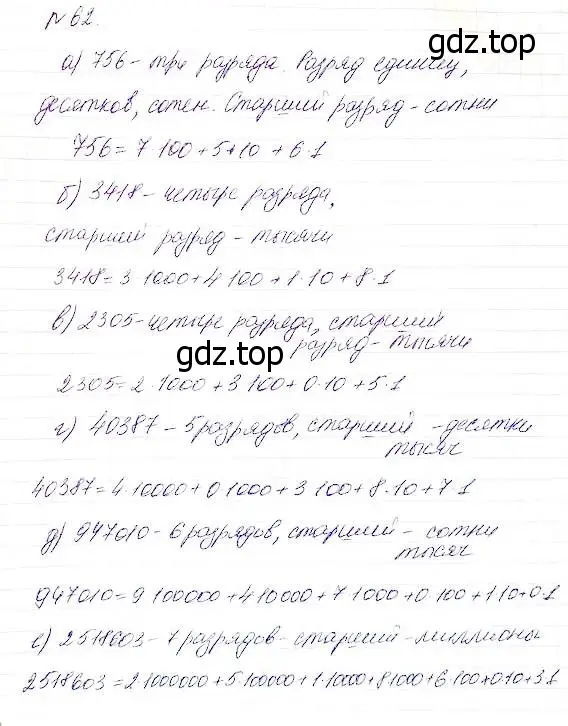 № 62.
gdz.top
а) 756 - три разряда. Разряд единиц,
десятков, сотен. Старший разряд - сотни
756 = 7 100 + 5+10 + 6·1
б) 3418 - четыре разряда,
старший разряд - тысячи
3418 = 3·1000 + 4 100 + 1·10 + 8·1
в) 2305 - четыре разряда, старший
разряд - тысячи
gdz.top
2305 = 2·1000 + 3 100 + 0·10 + 5·1
г) 40387 - 5 разрядов, старший - десятки
тысяч
40387 = 4·10000 + 0 1000 + 3 100 + 8·10 + 7 1
д) 947010 - 6 разрядов, старший - сотни
тысяч
947010 = 9 100000 + 4 10000 + 7 1000 + 0·100 + 1 10 + 0·1
е) 2518603 - 7 разрядов - старший - миллионы
2518603 = 2 1000000 + 5·10000 + 1·10000 + 8 1000 + 6·100 + 0·10 + 3·1
gdz.top